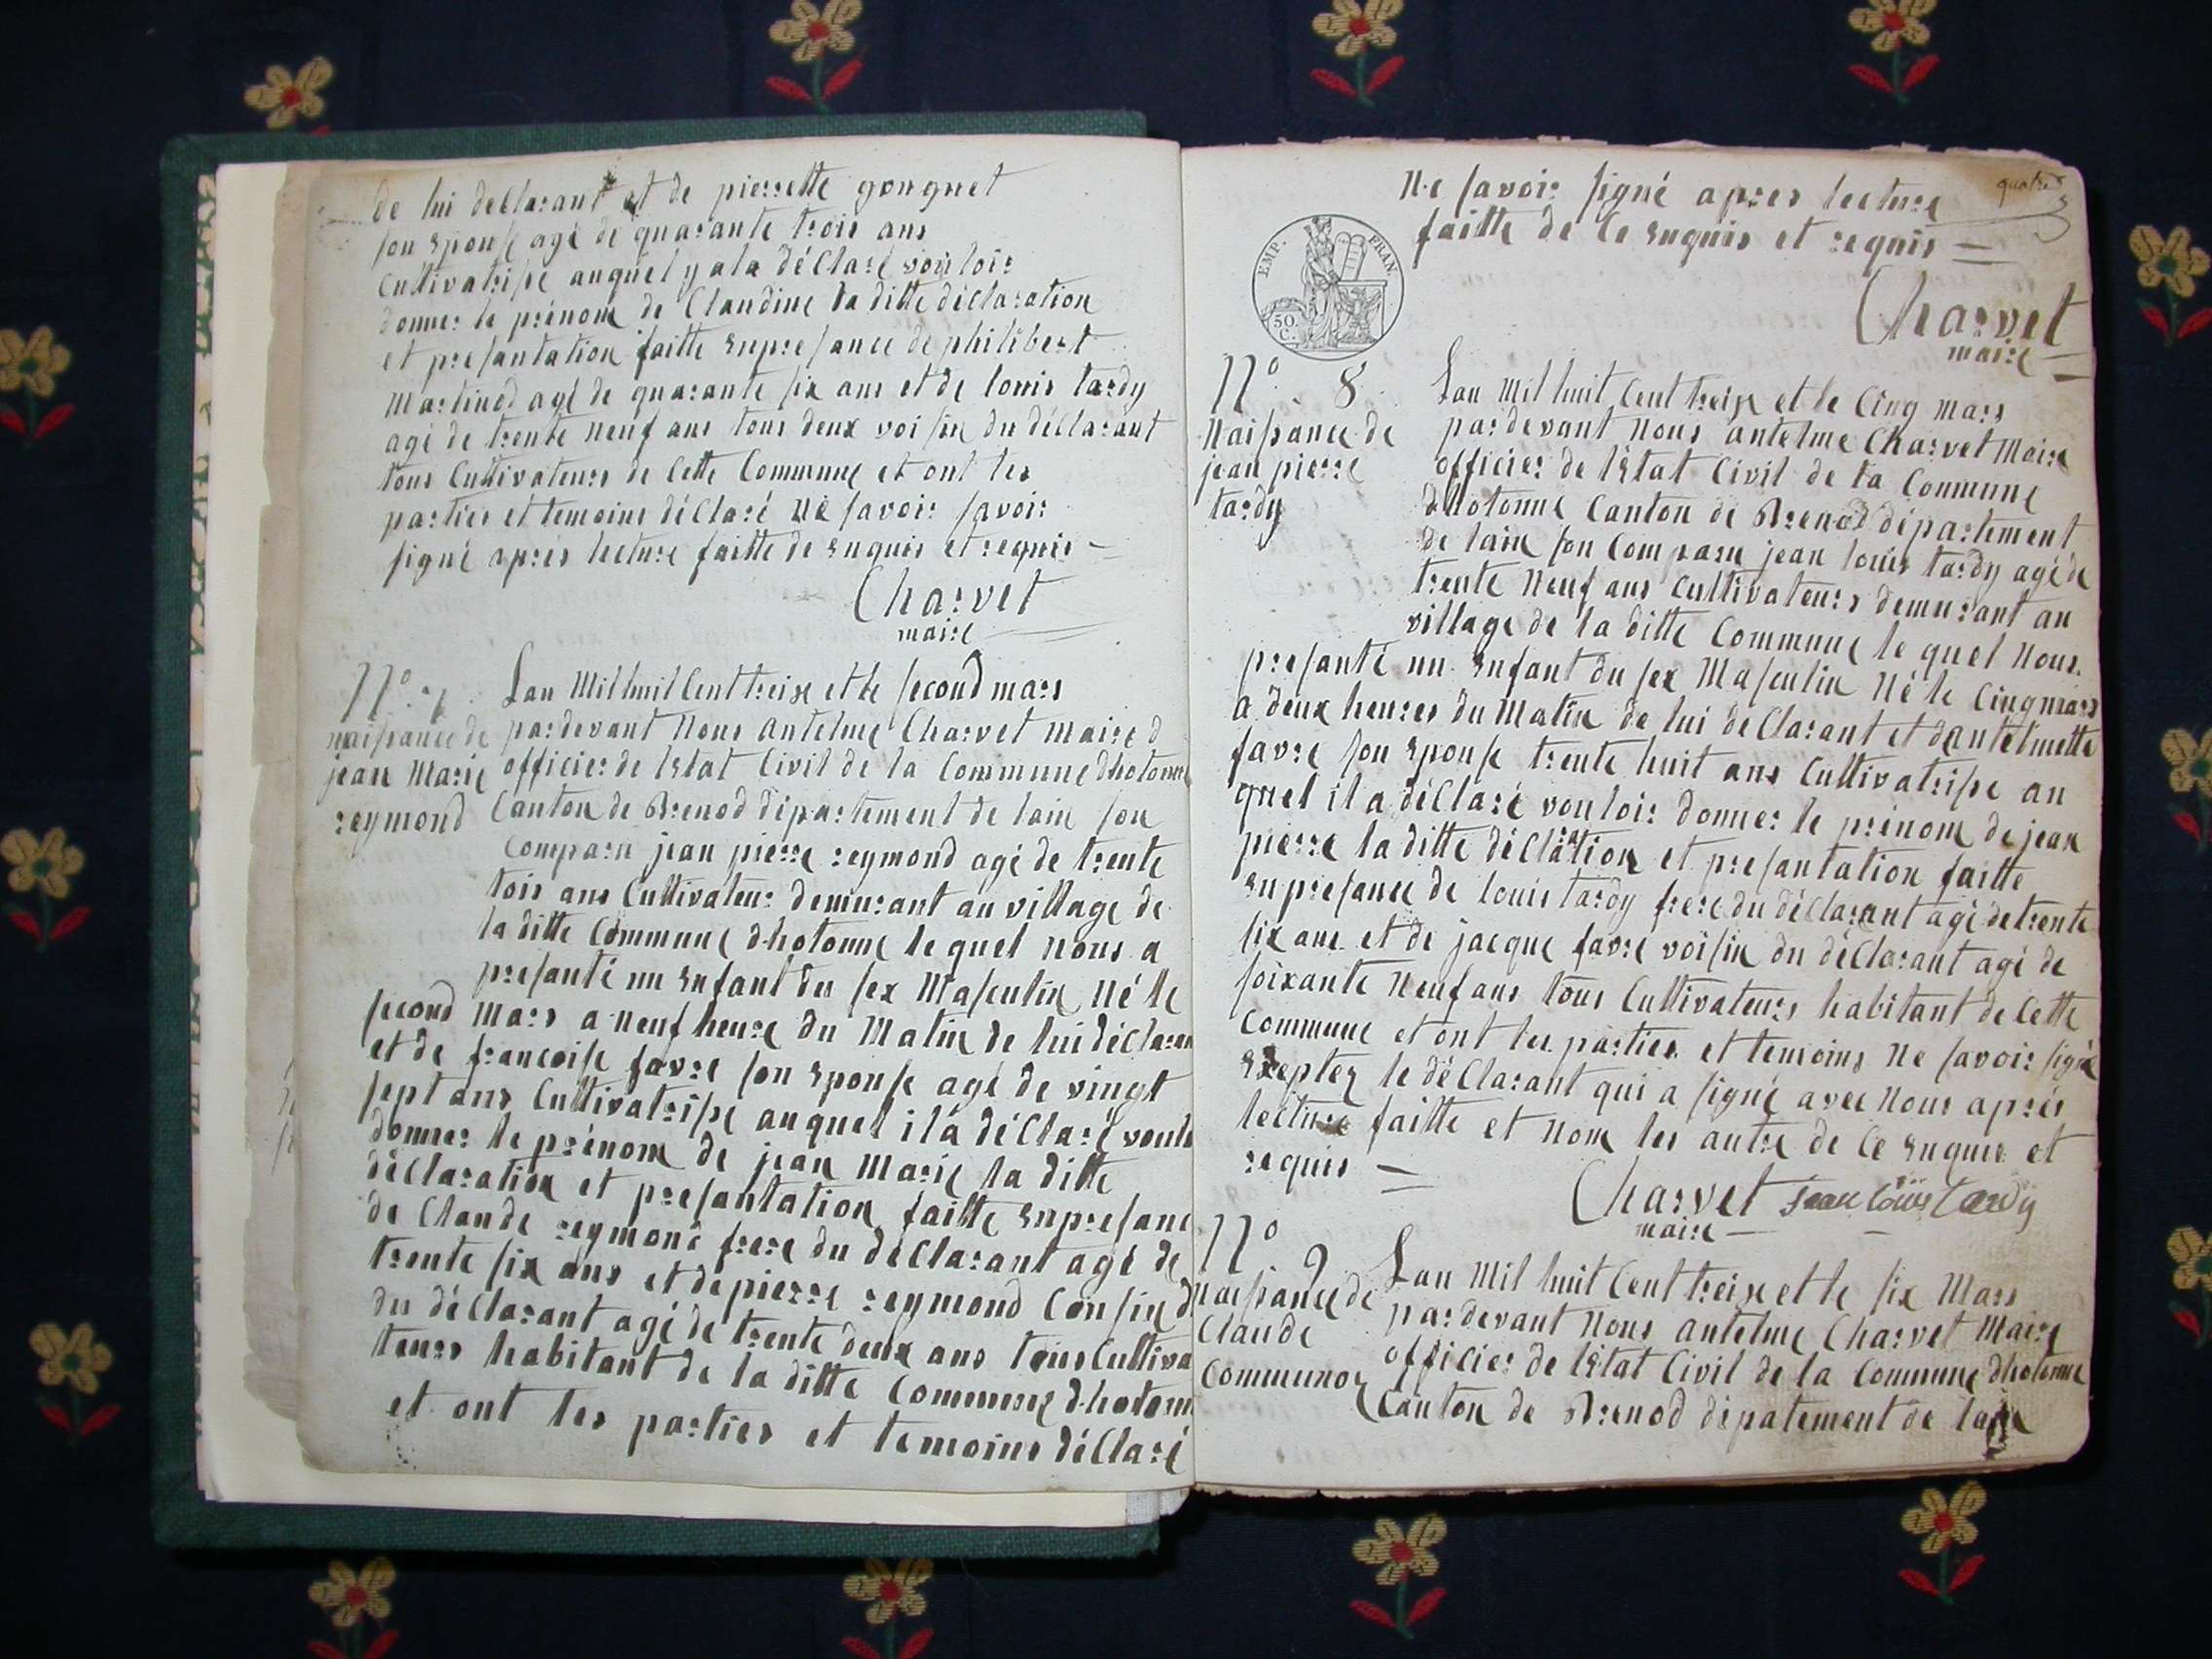 de lui declarant et de pierrette gouguet
son epouse agé de quarante trois ans
cultivatrisse auquel y a la déclaré vouloir
donner le prénom de Claudine la ditte déclaration
et presantation faitte enpresance de philibert
Martinod agé de quarante six ans et de louis tardy
agé de trente neuf ans tous deux voisin du déclarant
tous Cultivateurs de Cette Commune et ont les
parties et temoins déclaré Ne savoir savoir
signé aprés lecture faitte de enquis et requis
Charvet
maire
N° 7
naissance de
jean Marie
reymond
Lan Mil huit Cent treise et le second mars
pardevant Nous antelme Charvet maire d
officier de letat Civil de la Commune dhotonne
Canton de Brenod département de lain son
Comparu jean pierre reymond agé de trente
tois ans Cultivateur demurant au village de
la ditte Commune dhotonne le quel nous a
presanté un enfant du sex Masculin Né le
second Mars a neuf heure du Matin de lui déclaran
et de francoise favre son epouse agé de vingt
sept ans Cultivatrisse auquel il a déclaré voulo
donner le prénom de jean Marie la ditte
déclaration et presantation faitte enpresanc
de Claude reymond frere du déclarant agé de
trente six ans et de pierre reymond Consin d
du déclarant agé de trente deux ans tous Cultiva
teurs habitant de la ditte Commune dhotonn
et ont les parties et temoins déclaré
quatre
Ne savoir signé apres lecture
faitte de Ce enquis et requis
EMP. FRAN.
50.
C.
Charvet
maire
N° 8
Naissance de
jean pierre
tardy
Lan Mil huit Cent treise et le Cinq mars
pardevant nous antelme Charvet Maire
officier de létat Civil de la Commune
dhotonne Canton de Brenod département
de lain son Comparu jean louis tardy agé de
trente Neuf ans Cultivateurs demurant au
village de la ditte Commune le quel Nous
presanté un enfant du sex Masculin Né le Cinq mars
a deux heures du Matin de lui declarant et dantelmette
favre son epouse trente huit ans Cultivatrisse au
quel il a déclaré vouloir donner le prénom de jean
pierre la ditte déclaration et presantation faitte
enpresance de louis tardy frere du déclarant agé de trente
six ans et de jacque favre voisin du déclarant agé de
soixante neuf ans tous Cultivateurs habitant de Cette
Commune et ont les parties et temoins Ne savoir signé
exeptez le déclarant qui a signé avec Nous aprés
lecture faitte et Nom les autre de Ce enquis et
requis
Charvet jean louis tardy
maire
N° 9
Naissance de
Claude
Communoz
Lan Mil huit Cent treise et le six Mars
pardevant Nous antelme Charvet Maire
officier de létat Civil de la Commune dhotonne
Canton de Brenod dépatement de lain